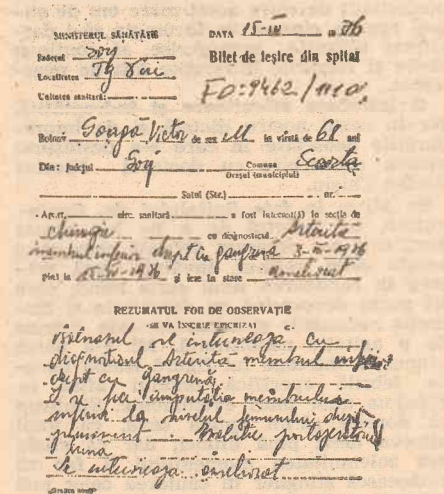 MINISTERUL SĂNĂTĂȚII DATA 15-IV 1976
Județul Gorj Bilet de ieșire din spital
Localitatea Tg Jiu
Unitatea sanitară: FO:9462/1110,
Bolnav Goagă Victor de sex M în vîrstă de 68 ani
Din: județul Gorj Comuna Scoarța
Orașul (municipiul)
Satul (Str.) nr.
circ. sanitară a fost internat(ă) în secția de
chirurgie cu diagnosticul Arterită
membrul inferior drept cu gangrenă 3-III-1976
pînă la 15-IV-1976 și iese în stare ameliorat
REZUMATUL FOII DE OBSERVAȚIE
(SE VA ÎNSCRIE EPICRIZA)
Bolnavul se internează cu
diagnosticul Arterită membrul
drept cu gangrenă.
I se face amputația membrului
inferior la nivelul femurului drept
Evoluție postoperatorie
bună
Se ameliorat